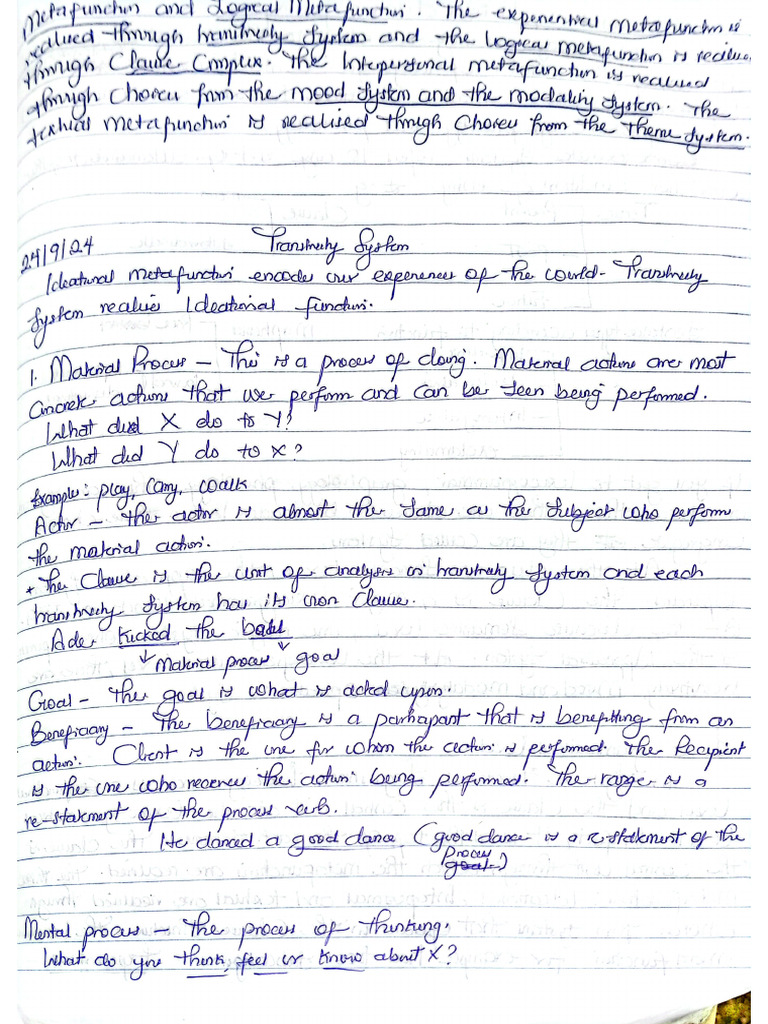 Metafunction and Logical Metafunction. The experiential metafunction is
realised through transitivity system and the Logical metafunction is realise
through Clause Complex. The Interpersonal metafunction is realised
through Choices from the mood system and the modality system. The
textual metafunction is realised through Choices from the theme system.
24/9/24 Transitivity System
Ideational metafunction encodes our experiences of the world - Transitivity
System realises Ideational function.
1. Material Process - This is a process of doing. Material actions are most
Concrete actions that we perform and can be seen being performed.
What did X do to Y?
What did Y do to X?
Example: play, Carry, walk
Actor - the actor is almost the same as the subject who perform
the material action.
* The Clause is the unit of analysis in transitivity system and each
transitivity system has its own Clause.
Ade kicked the ball
Material process goal
Goal - the goal is what is acted upon.
Beneficiary - The beneficiary is a participant that is benefitting from an
action. Client is the one for whom the action is performed. The Recipient
is the one who receives the action being performed. The range is a
re-statement of the process verb.
He danced a good dance (good dance is a re-statement of the
process
goal.)
Mental process - the process of thinking.
What do you think, feel or know about X?